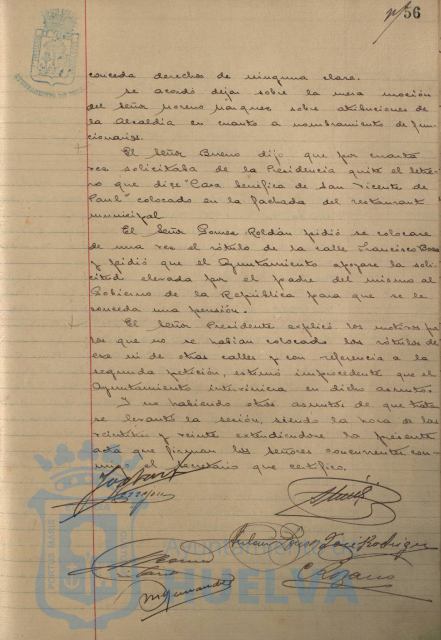 56
conceda derechos de ninguna clase.
se acordó dejar sobre la mesa moción
del Señor Moreno Márquez sobre atribuciones de
la Alcaldía en cuanto a nombramiento de fun-
cionarios.
El Señor Bueno dijo que por cuarta
vez solicitaba de la Presidencia quite el letre-
ro que dice "Casa benéfica de San Vicente de
Paul" colocado en la fachada del restaurante
municipal
El Señor Gomez Roldán pidió se colocase
de una vez el rótulo de la calle Francisco
y pidió que el Ayuntamiento apoyase la soli-
citud elevada por el padre del mismo al
Gobierno de la República para que se le
conceda una pensión.
El Señor Presidente explicó los motivos
los que no se habían colocado los rótulos de
esa ni de otras calles y con referencia a la
segunda petición, estimó improcedente que el
Ayuntamiento interviniera en dicho asunto.
Y no habiendo otros asuntos de que
se levantó la sesión, siendo la hora de las
veintiuna y veinte extendiéndose la presente
acta que firman los señores concurrentes con-
migo el secretario que certifico.
José Rodríguez
Ayuntamiento
HUELVA